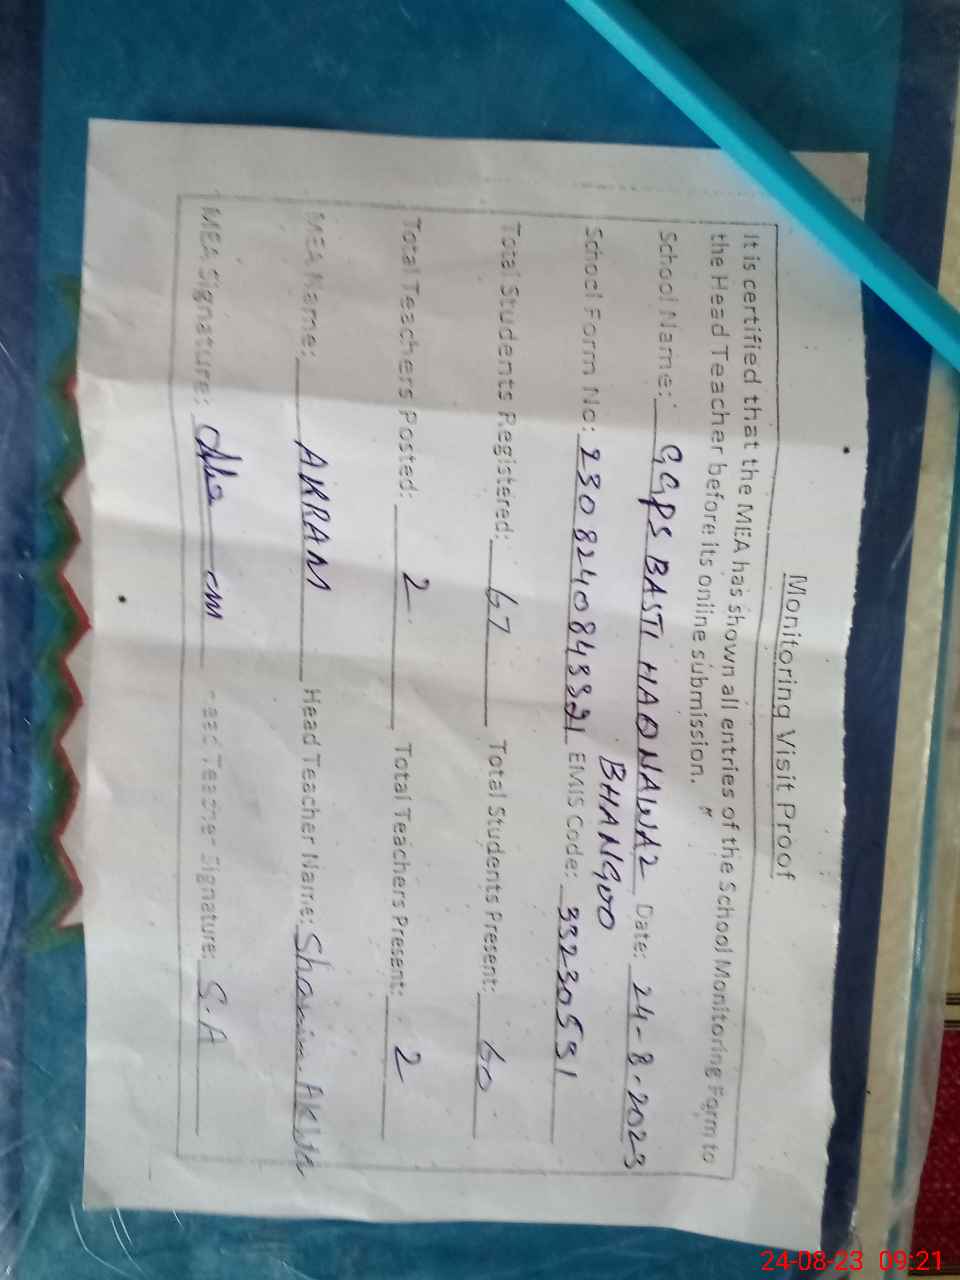 Monitoring Visit Proof
It is certified that the MEA has shown all entries of the School Monitoring Form to
the Head Teacher before its online submission.
School Name: GGPS BASTI HAQNAWAZ Date: 24-8-2023
BHANGOO
School Form No: EMIS Code:
Total Students Registered: 67 Total Students Present: 60
Total Teachers Posted: 2 Total Teachers Present: 2
MEA Name: AKRAM Head Teacher Name: Shamim
MEA Signature: Head Teacher Signature: S.A
24-08-23 09:21